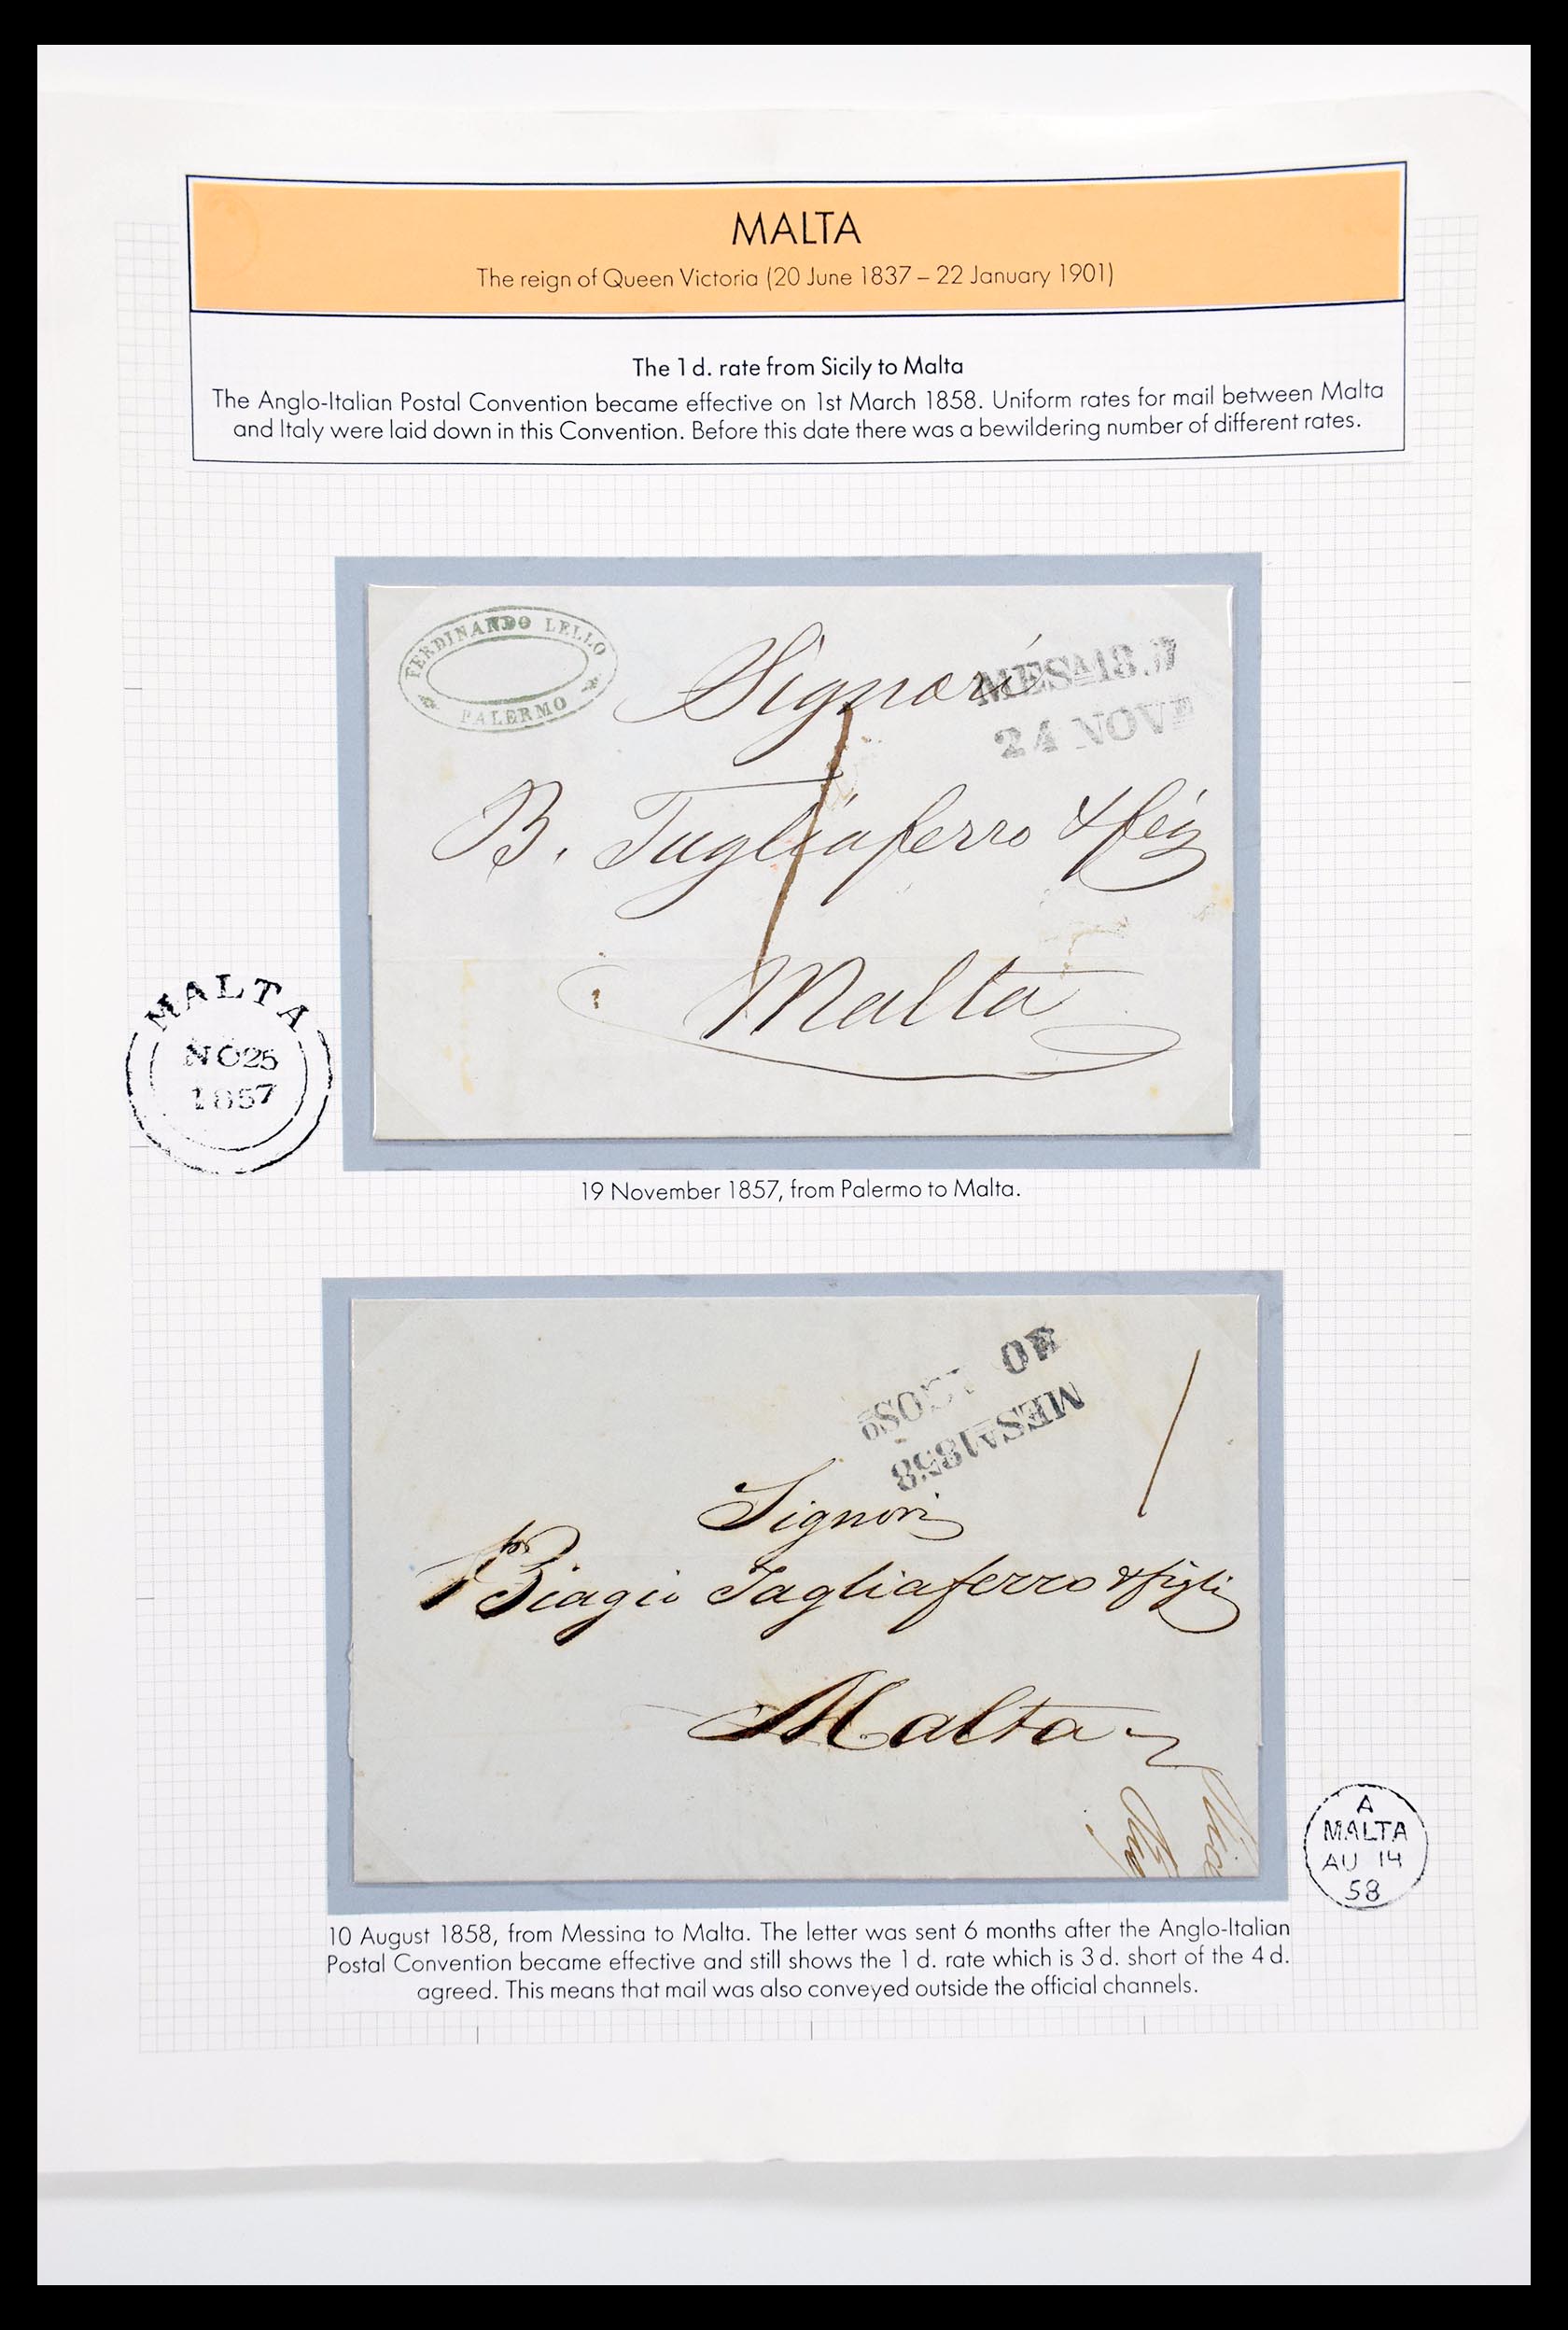 MALTA
The reign of Queen Victoria (20 June 1837 – 22 January 1901)
The 1 d. rate from Sicily to Malta
The Anglo-Italian Postal Convention became effective on 1st March 1858. Uniform rates for mail between Malta
and Italy were laid down in this Convention. Before this date there was a bewildering number of different rates.
FERDINANDO LELLO
PALERMO
Signori
MESA18
24 NOVE
1
B. Tagliaferro & figi
Malta
MALTA
NO25
1857
19 November 1857, from Palermo to Malta.
MESA1858
1
Signori
Biagio Tagliaferro & figli
Malta
A
MALTA
AU 14
58
10 August 1858, from Messina to Malta. The letter was sent 6 months after the Anglo-Italian
Postal Convention became effective and still shows the 1 d. rate which is 3 d. short of the 4 d.
agreed. This means that mail was also conveyed outside the official channels.